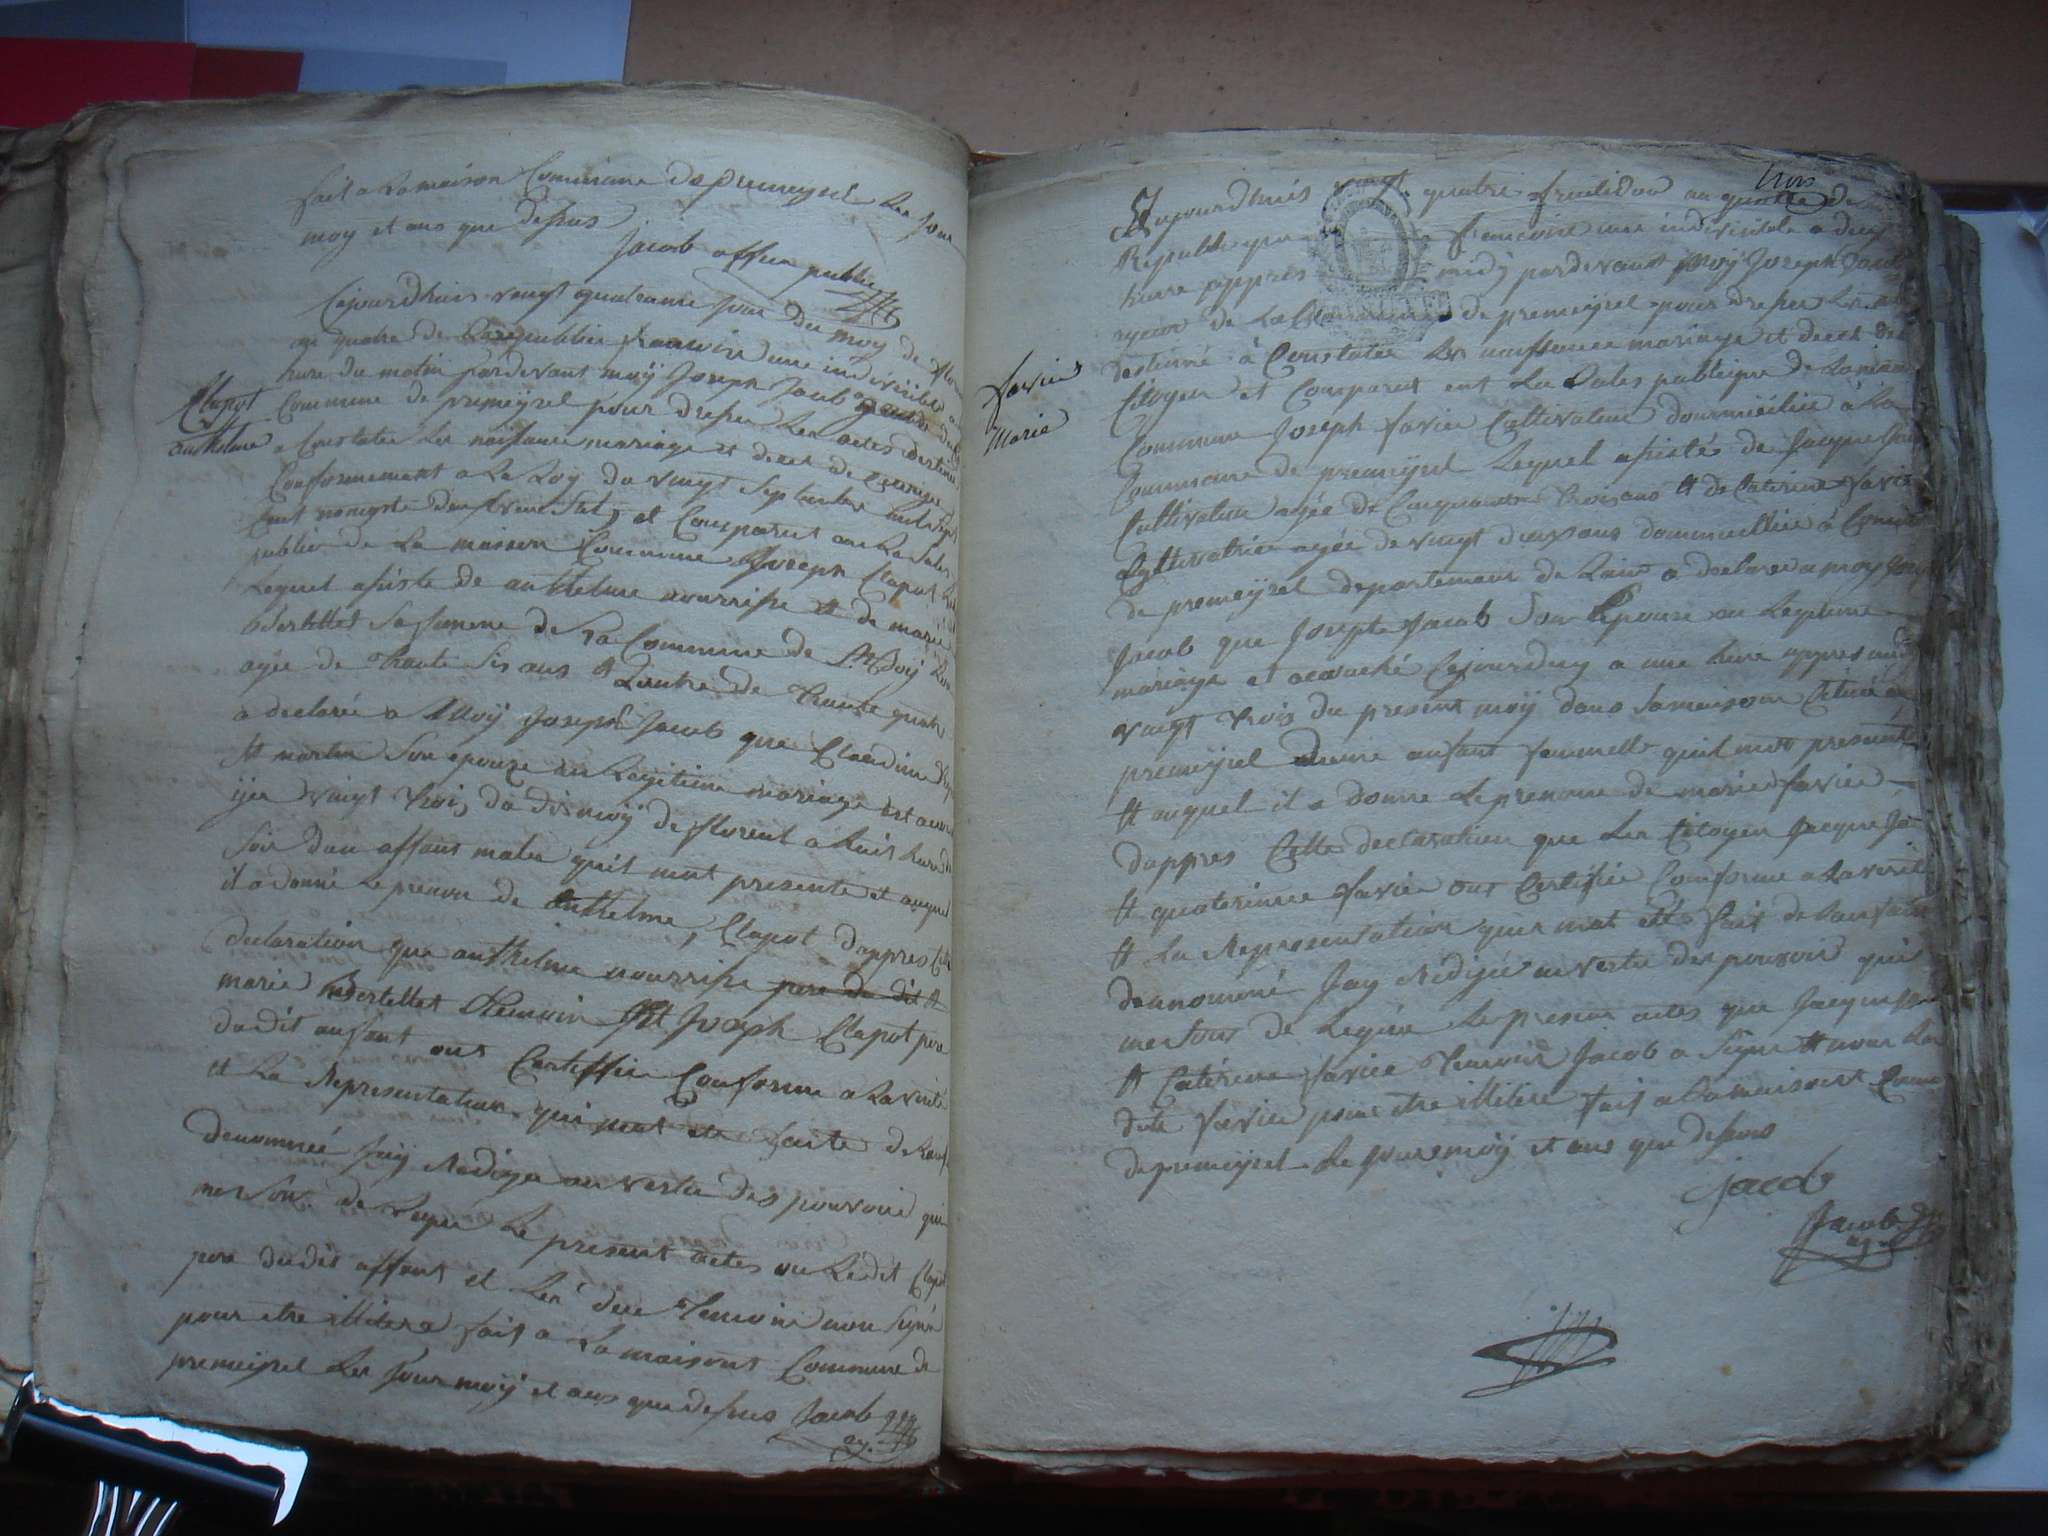 fait a Lamaison Commune de premeysel Les Jour
moy et ans que desus
Jacob officier public
Cejourdhuis vingt quatrieme jour du moy de flor
an quatre de Larepublic francoise une indivisible a
hure du matin pardevant moy Joseph Jacob
Clapot
anthelme
Commune de premeysel pour dresser Les actes destine
a Constater Les naissance mariage et deces de Citoyen
Conformement a La Loy du vingt Septembre mil Sept
Cent nonante deux et Comparut en La Sales
public de La maison Commune Joseph Clapot
Lequel asiste de anthelme nourrisse et de marie
Bertellet Sa femme de La Commune de St boy
agee de Trante Sis ans et Lautre de Trante quatre
a declarée a Moy Joseph Jacob que Claudine
et martin Son epouze en Legitime mariage est acou
yer vingt trois du dis moy de florent a huis hure du
Soir dun affans males quil mat presente et auquel
il a donné Le prenon de anthelme Clapot dappres Cette
declaration que anthelme nourrisse pere du dit et
marie Bertellet Temoin et Joseph Clapot pere
dudit anfant ont Certiffie Conforme a La verite
et La Representation qui mat ete faite de Lanf
denommeé Jay Rediger en vertu des pouvoir qui
me Sont de Legue Le present actes ou Ledit Clapot
pere dudis affant et Les deu Temoin non Signé
pour etre illitere fait a La maisont Commune de
premeysel Les Jour moy et ans que desus Jacob
trois
Aujourdhuis vingt quatre fructidor an quatre de
Republique francoise une indivisible a deux
hure appres midy pardevant Moy Joseph Jacob
de La Commune de premeysel pour dresser Les
destinné à Constater Les naissance mariage et deces des
favier
Marie
Citoyen et Comparut ent La Sales publique de Lamaison
Commune Joseph favier Cultivateur dommicilié à La
Commune de premeysel Lequel asistés de Jacque Jacob
Cultivateur agée de Cinquante trois ans et de Caterine favier
Cultivatrice agée de vingt deux ans dommicillie à
de premeysel departement de Lain a declaré a moy Joseph
Jacob que Josepte Jacob Son Epouse en Legitime
mariage et acouché Cejourduy a une hure appres midy
vingt trois du present moy dans Samaison Cituée a
premeysel dune anfant femmelle quil mat presenté
et auquel il a donne Le prenome de marie favier
dappres Cette declaration que Les Citoyen Jacque Ja
et quaterinne favier ont Certifiée Conforme a La verité
et La Representation quis mat eté fait de Lanfant
denommé Jay Redigée en vertu des pouvoir qui
me Sont de Leguée Le presens actes que Jacque Jacob
et Caterine favier Temoin Jacob a Signe et non La
dite favier pour etre illitere fait a La maisont Commune
de premeysel Le Jour moy et ans que desus
Jacob
Jacob